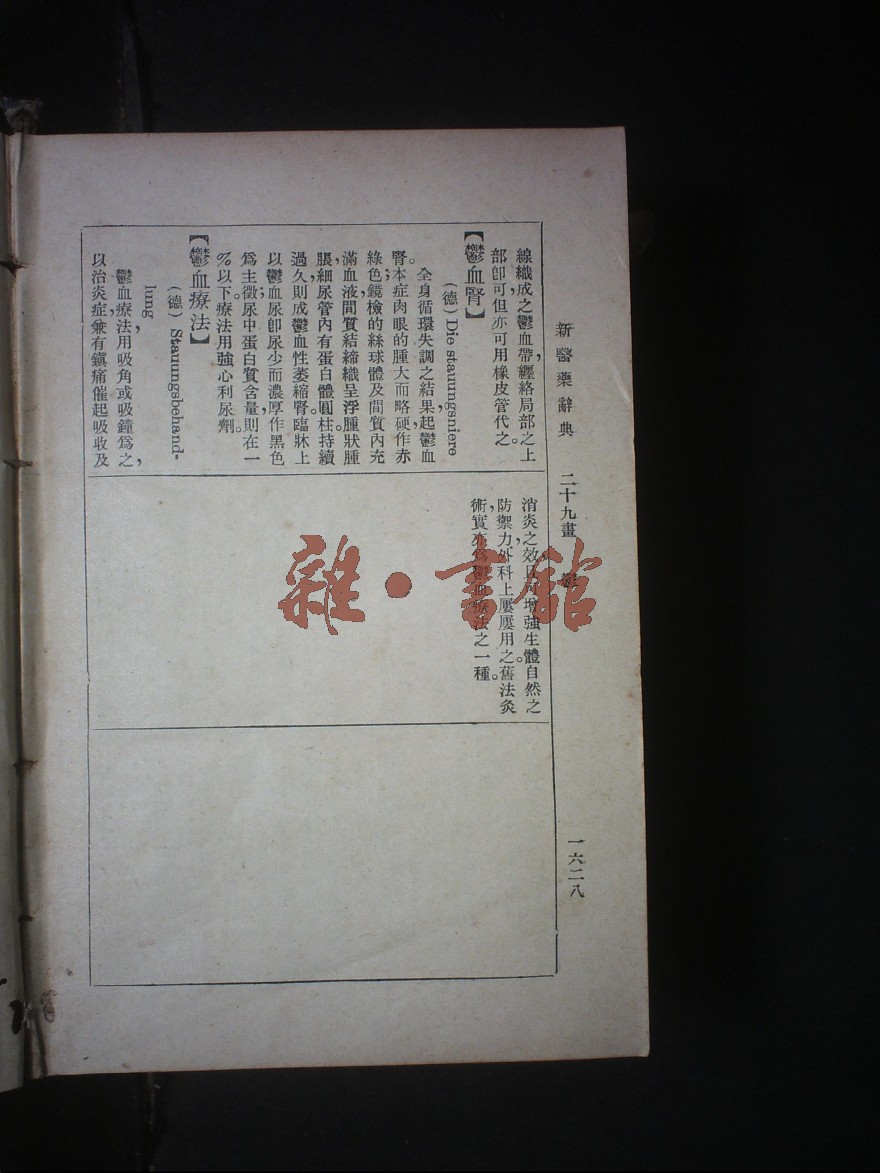 新醫藥辭典 二十九畫 鬱 一六二八
線織成之鬱血帶，纏絡局部之上
部卽可，但亦可用橡皮管代之。
【鬱血腎】
(德) Die stauungsniere
全身循環失調之結果，起鬱血
腎。本症肉眼的腫大而略硬，作赤
綠色；鏡檢的絲球體及間質內充
滿血液，間質結締織呈浮腫狀腫
脹，細尿管內有蛋白體圓柱，持續
過久則成鬱血性萎縮腎。臨牀上
以鬱血尿，卽尿少而濃厚作黑色
爲主徵；尿中蛋白質含量，則在一
%以下。療法用強心利尿劑。
【鬱血療法】
(德) Stauungsbehand-
lung
鬱血療法，用吸角或吸鐘爲之，
以治炎症，兼有鎭痛催起吸收及
消炎之效，且可增強生體自然之
防禦力，外科上屢屢用之。舊法灸
術，實亦爲鬱血療法之一種。
雜·書館